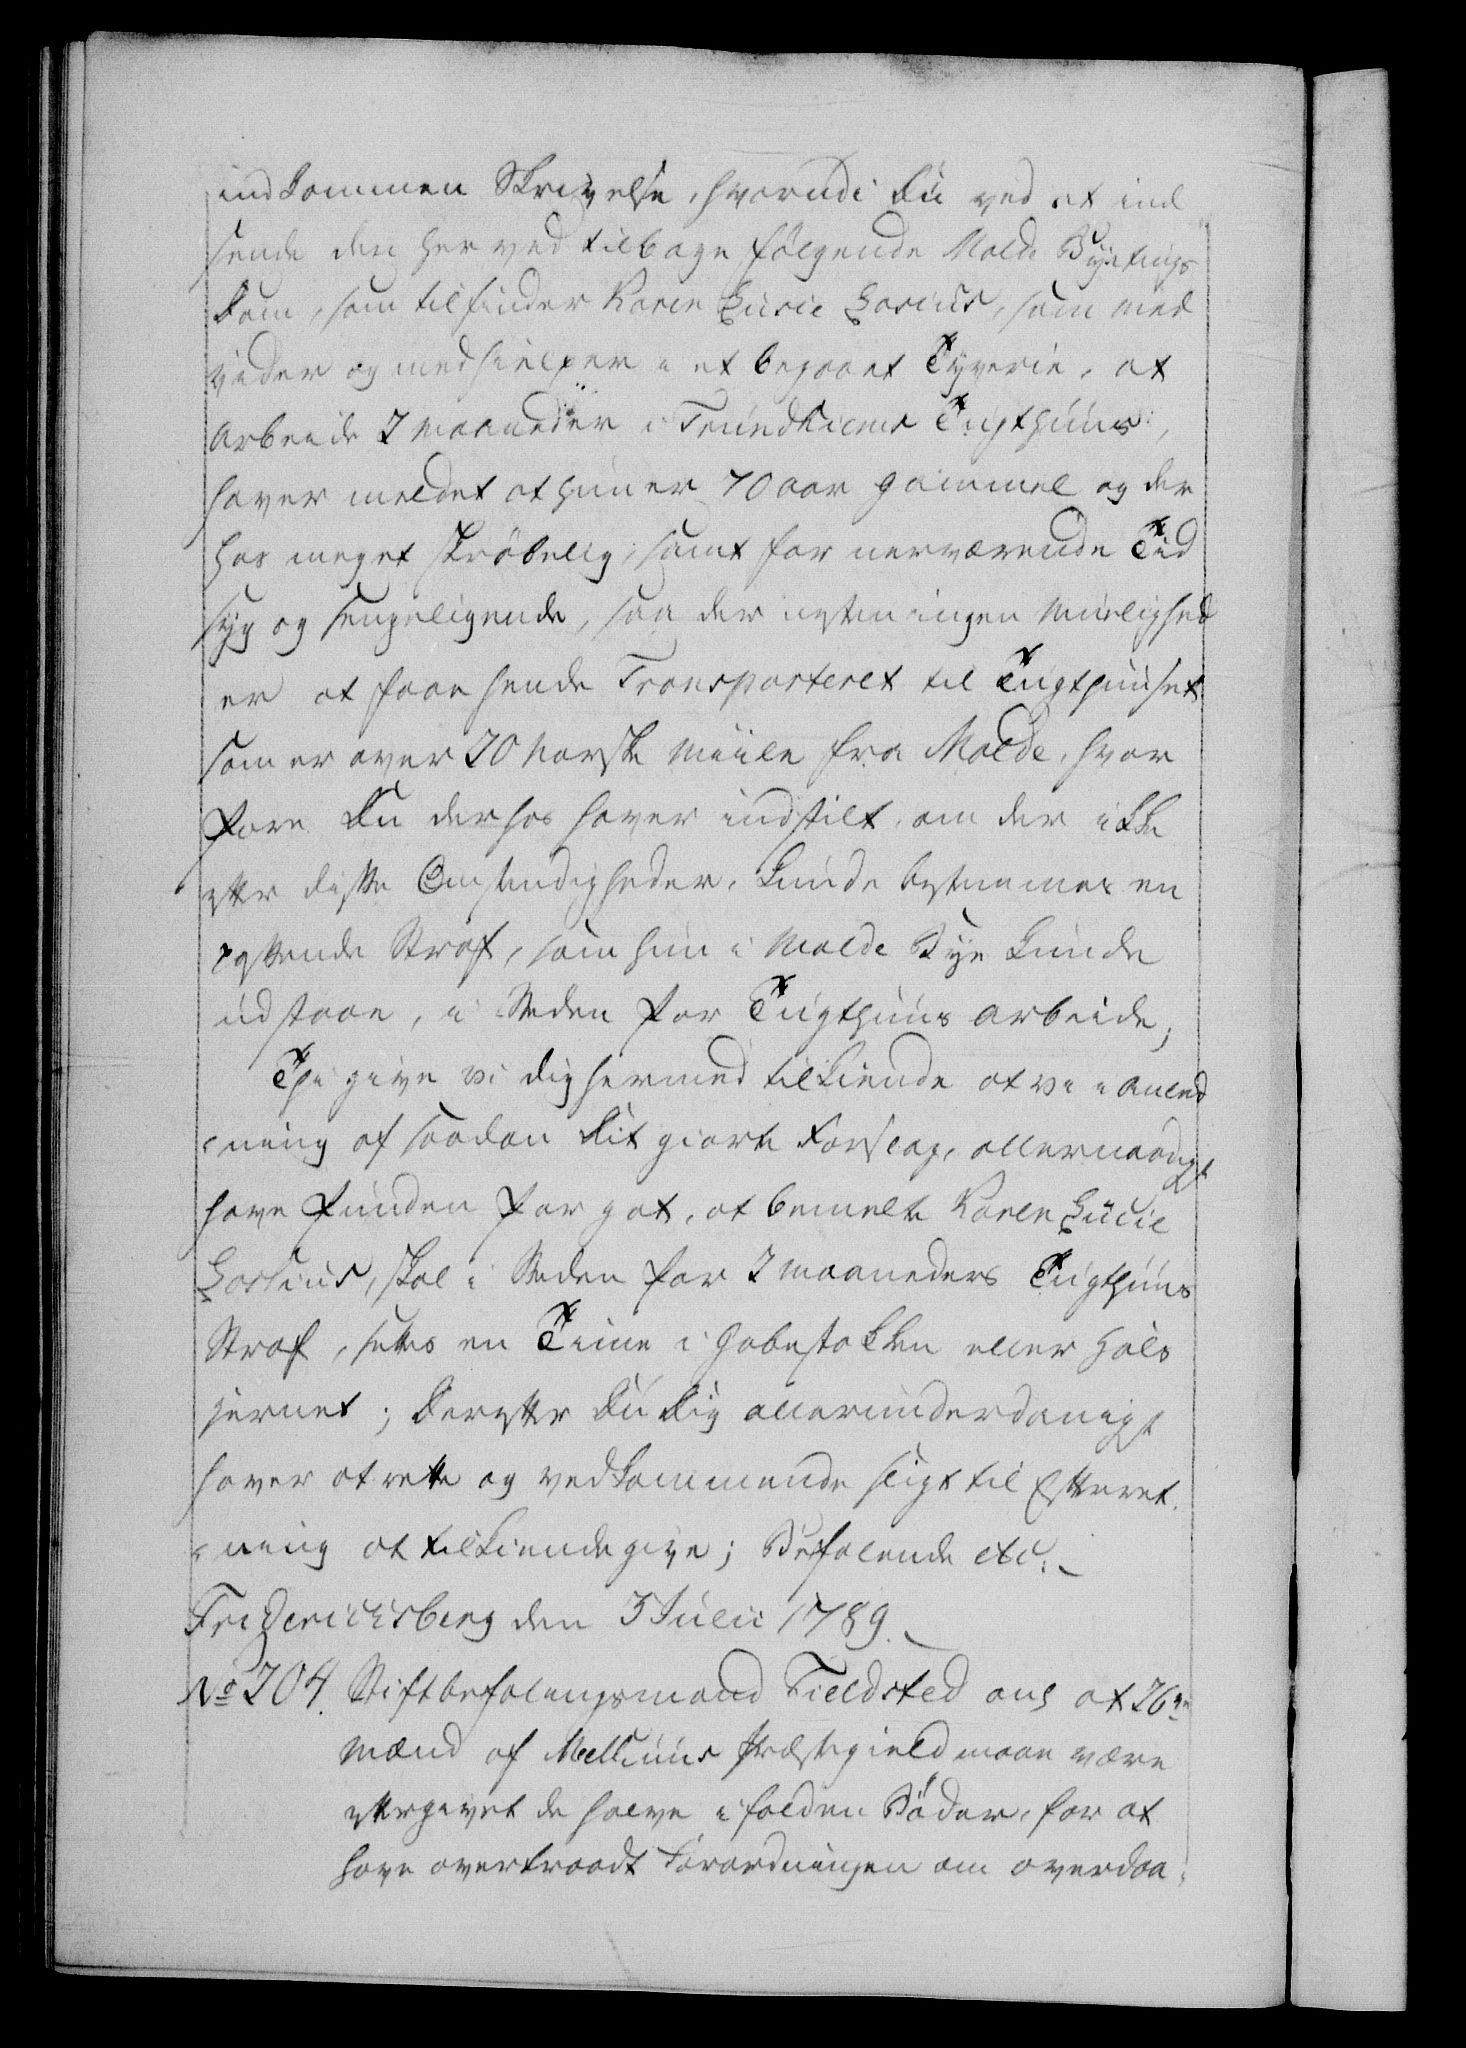 indkommen Skrivelse, hvorudi Du ved at ind
sende den herved tilbage følgende Molde Byetings
Dom, som tilfinder Karen Lucie Lossius, som med
vider og medhielper i et begaaet Tyverie, at
arbeide 2 maaneder i Trundhiems Tugthuus,
haver meldet at hun er 70 aar gammel og der
hos meget skrøbelig, samt for nærværende Tid
syg og sengeligende, saa der nesten ingen Muelighed
er at faae hende Transporteret til Tugthuuset
som er over 20 Norske Miile fra Molde, hvor
fore Du derhos haver indstilt, om der ikke
efter disse Omstændigheder, kunde bestemmes en
passende Straf, som hun i Molde Bye kunde
udstaae, i Steden for Tugthuus arbeide;
Thi give vi dig hermed tilkiende at vi i Anled
ning af saadan Dit giorte Forslag, allernaadigst
have funden for got, at bemelte Karen Lucie
Lossius, skal i Steden for 2 maaneders Tugthuus
Straf, settes en Time i Gabestokken eller Hals
jernet; Derefter Du Dig allerunderdanigst
haver at rette og vedkommende sligt til Efterret
ning at tilkiendegive; Befalende etc.
Friderichsberg den 3 Julii 1789.
No 204. Stiftbefalingsmand Fieldsted anl at 26de
Mænd af Melhuus Præstegield maae være
eftergivet de halve ifalden Bøder, for at
have overtraadt Forordningen om overdaa